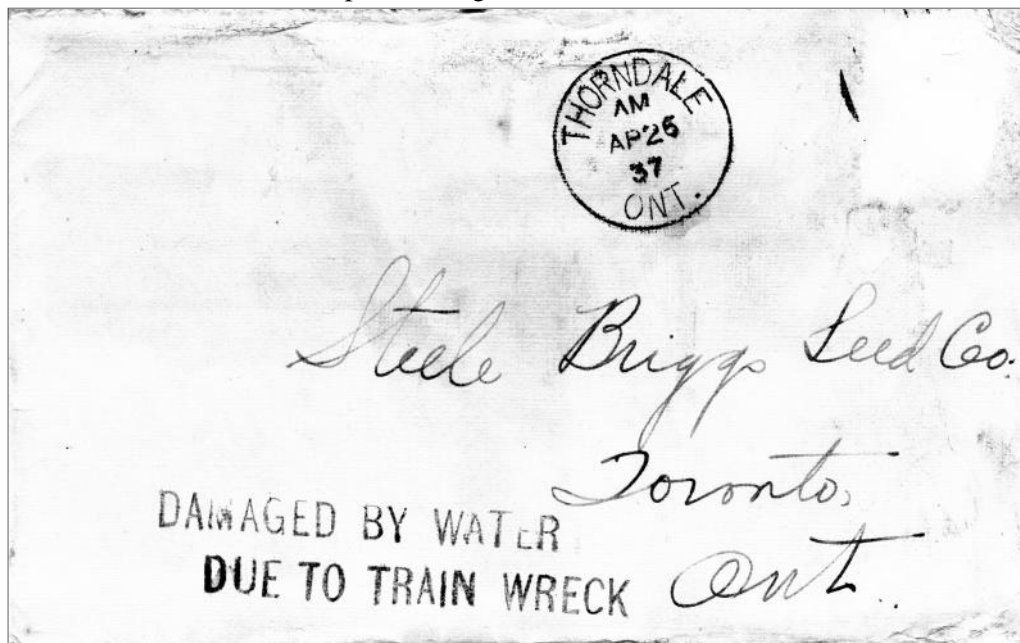 THORNDALE
AM
AP 26
37
ONT.
Steele Briggs Seed Co.
Toronto,
Ont.
DAMAGED BY WATER
DUE TO TRAIN WRECK